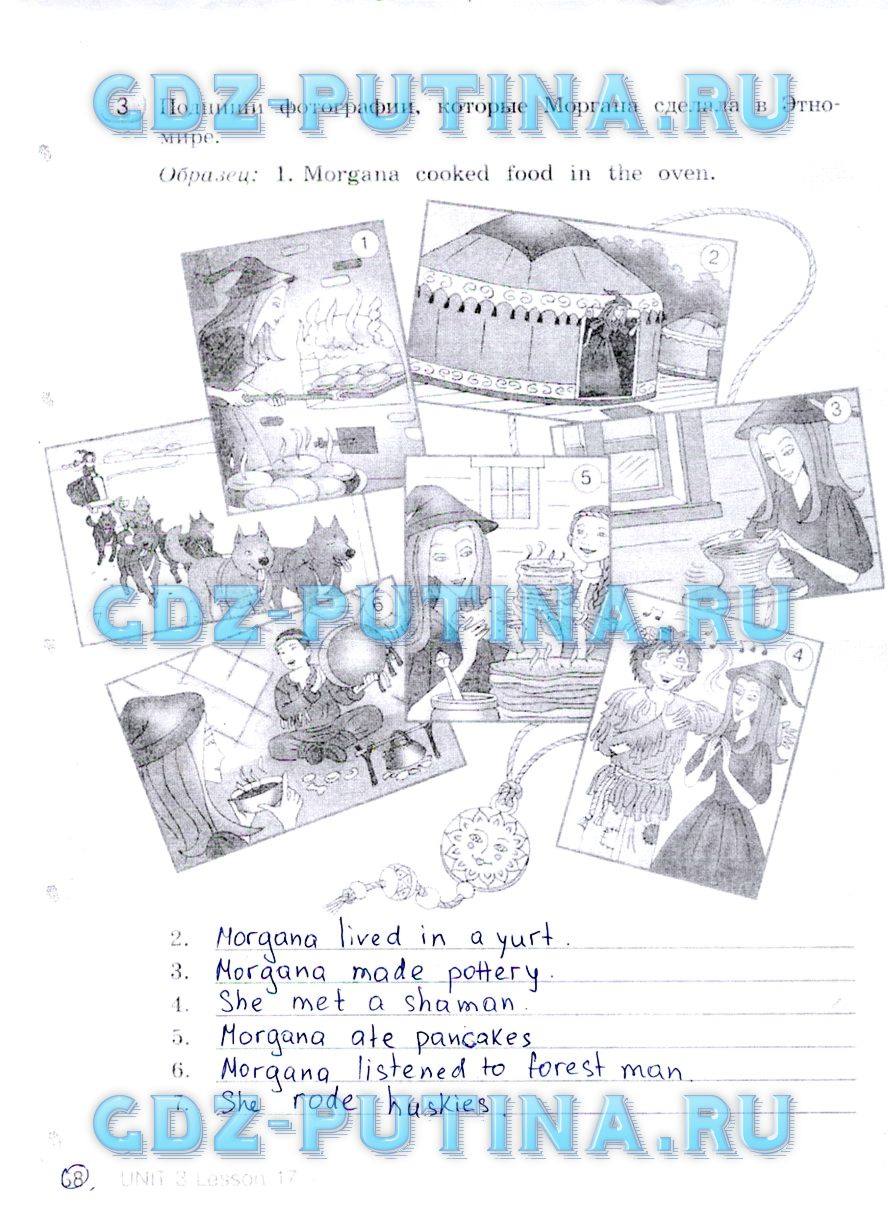 GDZ-PUTINA.RU
3 Подпиши фотографии, которые Моргана сделала в Этно-
мире.
Образец: 1. Morgana cooked food in the oven.
1
2
3
5
GDZ-PUTINA.RU
6
4
2. Morgana lived in a yurt.
3. Morgana made pottery.
4. She met a shaman.
5. Morgana ate pancakes
6. Morgana listened to forest man.
7. She rode huskies.
GDZ-PUTINA.RU
68 UNIT 3 Lesson 17